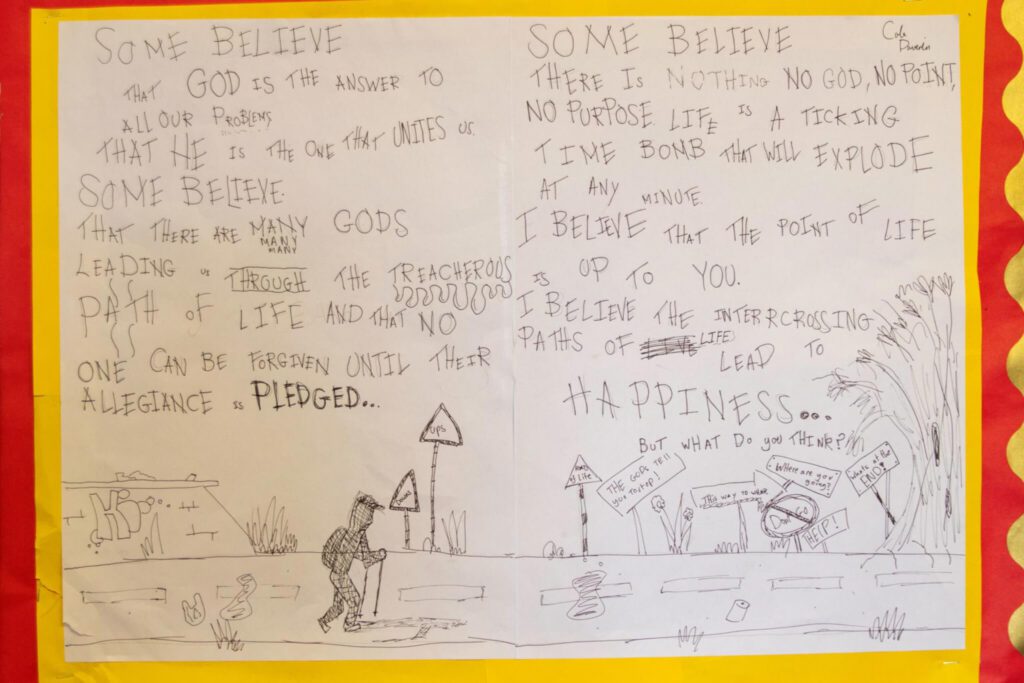 SOME BELIEVE
THAT GOD IS THE ANSWER TO
ALL OUR PROBLEMS
THAT HE IS THE ONE THAT UNITES US.
SOME BELIEVE.
THAT THERE ARE MANY GODS
MANY
MANY
LEADING US THROUGH THE TREACHEROUS
PATH OF LIFE AND THAT NO
ONE CAN BE FORGIVEN UNTIL THEIR
ALLEGIANCE IS PLEDGED...
UPS
SOME BELIEVE
THERE IS NOTHING NO GOD, NO POINT,
NO PURPOSE LIFE IS A TICKING
TIME BOMB THAT WILL EXPLODE
AT ANY MINUTE.
I BELIEVE THAT THE POINT OF LIFE
IS UP TO YOU.
I BELIEVE THE INTERRCROSSING
PATHS OF LIFE LEAD TO
HAPPINESS...
BUT WHAT DO YOU THINK?
of Life
THE GODS TELL
you to stop!
This way to
Where are you
going?
Don't GO
HELP!
END!
Cole